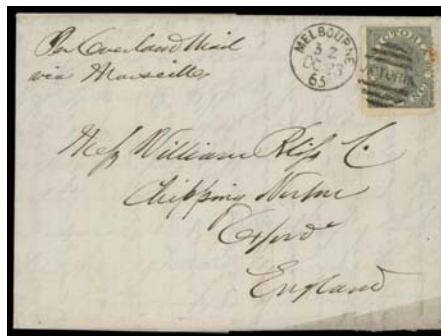 Per Overland Mail
via Marseilles
MELBOURNE
OC
65
VICTORIA
VICTORIA
Messrs William Bliss C.
Chipping Norton
Oxford
England